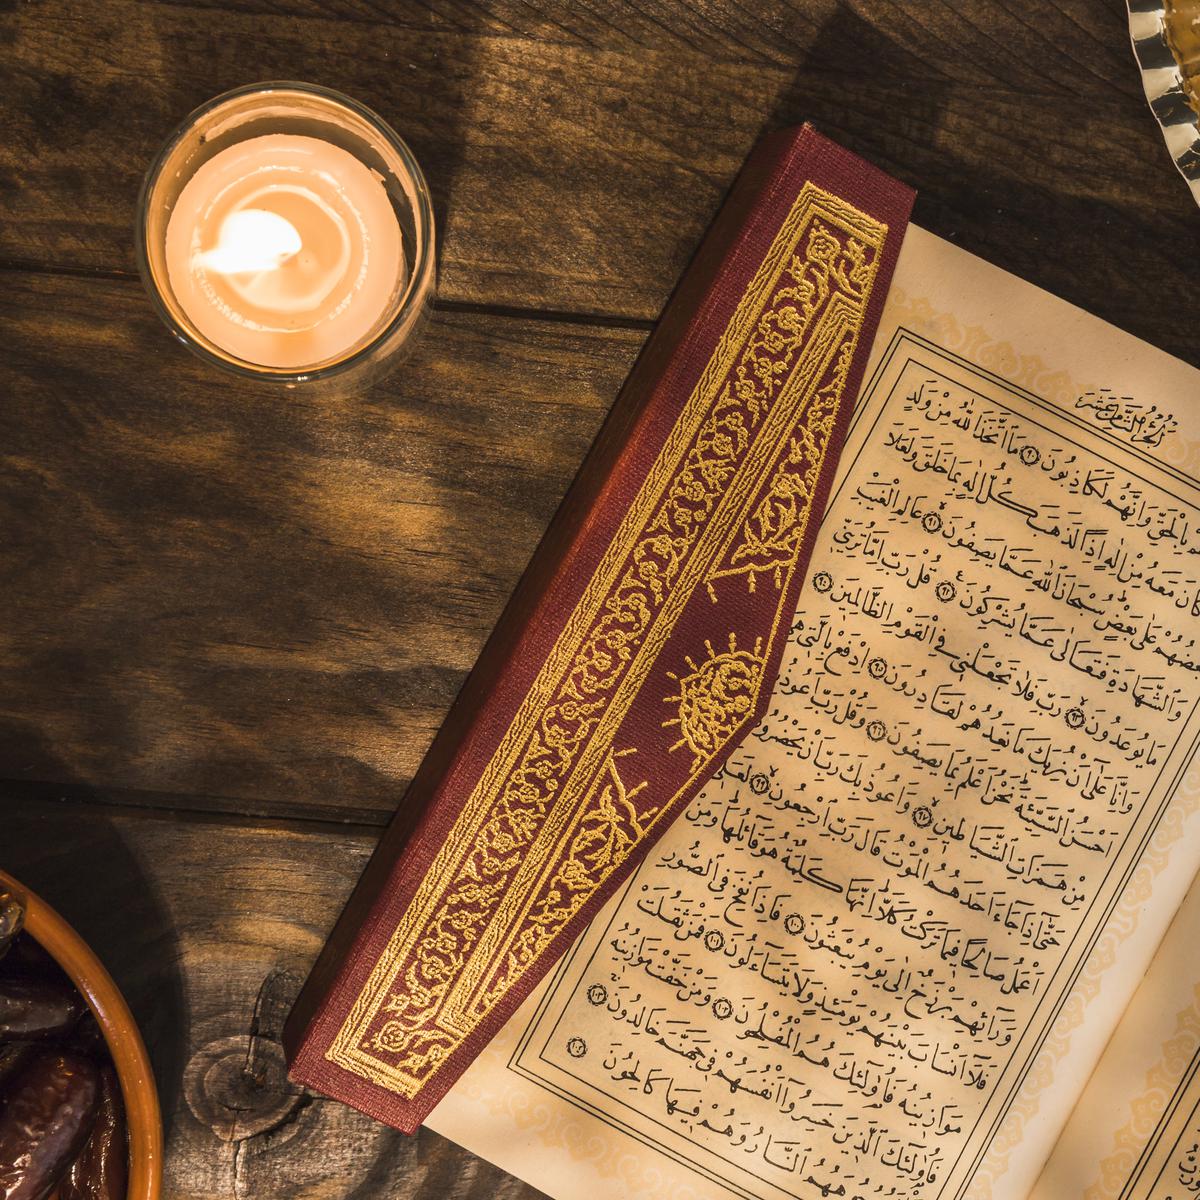 الْجُزْءُ الثَّامِنُ عَشَرَ
بِالْحَقِّ وَاِنَّهُمْ لَكَاذِبُونَ ﴿٩٠﴾ مَا اتَّخَذَ اللّٰهُ مِنْ وَلَدٍ
كَانَ مَعَهُ مِنْ اِلٰهٍ اِذًا لَذَهَبَ كُلُّ اِلٰهٍ بِمَا خَلَقَ وَلَعَلَا
بَعْضُهُمْ عَلٰى بَعْضٍ سُبْحَانَ اللّٰهِ عَمَّا يَصِفُونَ ﴿٩١﴾ عَالِمِ الْغَيْبِ
وَالشَّهَادَةِ فَتَعَالٰى عَمَّا يُشْرِكُونَ ﴿٩٢﴾ قُلْ رَبِّ اِمَّا تُرِيَنِّي
مَا يُوعَدُونَ ﴿٩٣﴾ رَبِّ فَلَا تَجْعَلْنِي فِي الْقَوْمِ الظَّالِمِينَ ﴿٩٤﴾
وَاِنَّا عَلٰٓى اَنْ نُرِيَكَ مَا نَعِدُهُمْ لَقَادِرُونَ ﴿٩٥﴾ اِدْفَعْ بِالَّتِي هِيَ
اَحْسَنُ السَّيِّئَةَ نَحْنُ اَعْلَمُ بِمَا يَصِفُونَ ﴿٩٦﴾ وَقُلْ رَبِّ اَعُوذُ
مِنْ هَمَزَاتِ الشَّيَاطِينِ ﴿٩٧﴾ وَاَعُوذُ بِكَ رَبِّ اَنْ يَحْضُرُونِ
حَتّٰٓى اِذَا جَاءَ اَحَدَهُمُ الْمَوْتُ قَالَ رَبِّ ارْجِعُونِ ﴿٩٩﴾ لَعَلِّي
اَعْمَلُ صَالِحًا فِيمَا تَرَكْتُ كَلَّا اِنَّهَا كَلِمَةٌ هُوَ قَائِلُهَا وَمِنْ
وَرَائِهِمْ بَرْزَخٌ اِلٰى يَوْمِ يُبْعَثُونَ ﴿١٠٠﴾ فَاِذَا نُفِخَ فِي الصُّورِ
فَلَا اَنْسَابَ بَيْنَهُمْ يَوْمَئِذٍ وَلَا يَتَسَاءَلُونَ ﴿١٠١﴾ فَمَنْ ثَقُلَتْ
مَوَازِينُهُ فَاُولٰئِكَ هُمُ الْمُفْلِحُونَ ﴿١٠٢﴾ وَمَنْ خَفَّتْ مَوَازِينُهُ
فَاُولٰئِكَ الَّذِينَ خَسِرُوا اَنْفُسَهُمْ فِي جَهَنَّمَ خَالِدُونَ ﴿١٠٣﴾
النَّارُ وَهُمْ فِيهَا كَالِحُونَ ﴿١٠٤﴾